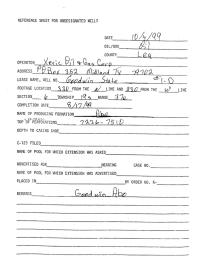 REFERENCE SHEET FOR UNDESIGNATED WELLS
DATE 10/4/99
OIL/GAS Oil
COUNTY Lea
OPERATOR Xeric Oil & Gas Corp
ADDRESS PO Box 352 Midland Tx 79702
LEASE NAME, WELL NO. Goodwin State #1-D
FOOTAGE LOCATION 330 FROM THE LINE AND 330 FROM THE LINE
SECTION 6 TOWNSHIP 19s RANGE 37e
COMPLETION DATE 8/17/99
NAME OF PRODUCING FORMATION Abo
TOP OF PERFORATIONS 7226-7510
DEPTH TO CASING SHOE
C-123 FILED
NAME OF POOL FOR WHICH EXTENSION WAS ASKED
ADVERTISED FOR HEARING CASE NO.
NAME OF POOL FOR WHICH EXTENSION WAS ADVERTISED
PLACED IN BY ORDER NO. R-
REMARKS Goodwin Abo